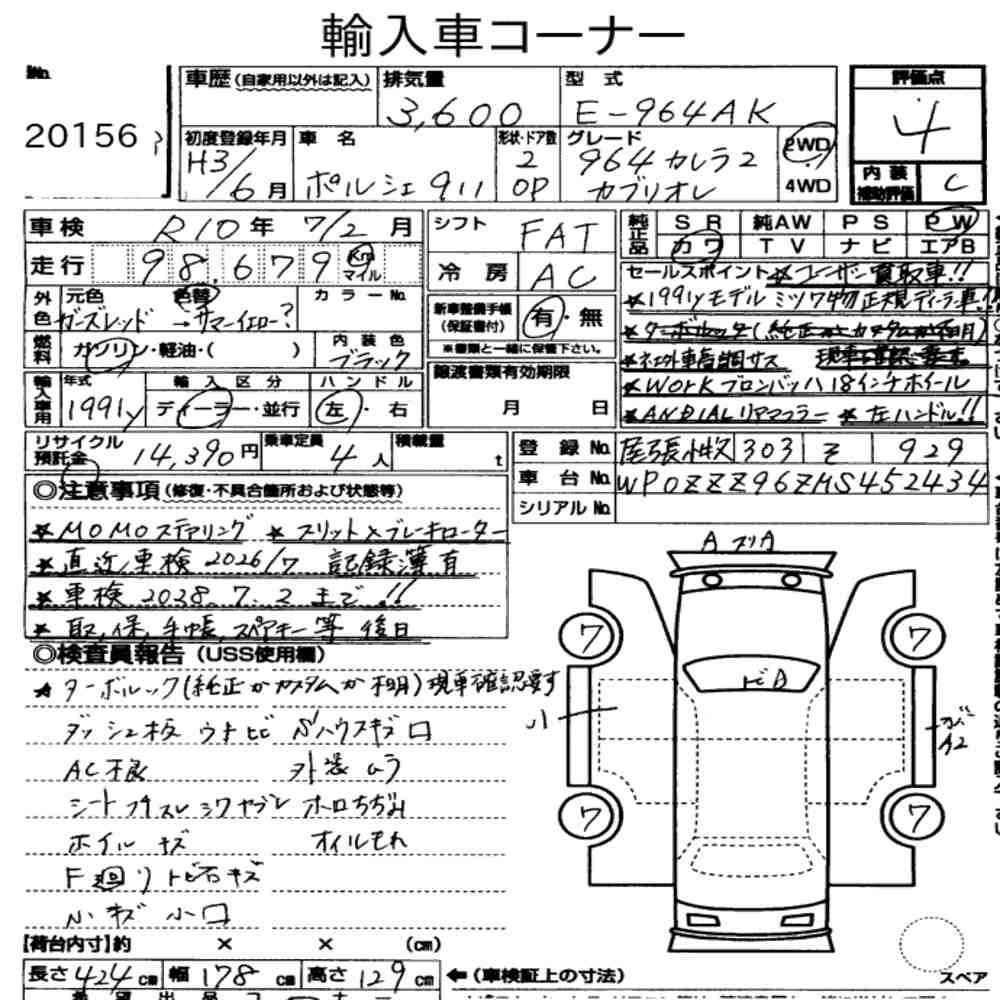 輸入車コーナー
No.
20156
車歴 (自家用以外は記入)
排気量
3,600
型式
E-964AK
評価点
4
内装
補助評価
C
初度登録年月
H3/6月
車名
ポルシェ 911
形状・ドア数
2
OP
グレード
964 カレラ2
カブリオレ
2WD
4WD
車検 R10年 7/2月
走行 98,679 Km マイル
シフト FAT
冷房 AC
純正品 SR 純AW PS PW
カワ TV ナビ エアB
外色 元色 色替 カラーNo.
ガーズレッド → サマーイエロー?
燃料 ガソリン・軽油・( )
内装色 ブラック
新車整備手帳 (保証書付) 有・無
※書類と一緒に保管下さい。
セールスポイント ★ユーザー買取車!!
★1991yモデル ミツワ物正規ディーラー車!!
★ターボルック(純正かカスタムか不明)
現車確認要す
★WORK ブロンバッハ 18インチホイール
★ANDIALリアマフラー ★左ハンドル!!
輸入車用 年式 輸入区分 ハンドル
1991y ディーラー・並行 左・右
譲渡書類有効期限
月 日
リサイクル預託金 14,390円
乗車定員 4人
積載量 t
登録No. 尾張小牧 303 そ 929
車台No. WP0ZZZ96ZMS452434
シリアルNo.
◎注意事項 (修復・不具合箇所および状態等)
★MOMOステアリング ★スリット×ブレーキローター
★直近車検 2026/7 記録簿有
★車検 2028.7.2まで!!
★取,保,手帳,スペアキー等 後日
◎検査員報告 (USS使用欄)
★ターボルック(純正かカスタムか不明)現車確認要す
ダッシュ板ウキヒビ ハウスキズ 口
AC不良 外装ムラ
シートフチスレシワヤブレ ホロちぢみ
ホイルキズ オイルもれ
F廻り トビ石キズ
小キズ 小口
A
トビA
ワ
ワ
ワ
ワ
カバー
A2
【荷台内寸】約 × × (cm)
長さ 424cm 幅 178cm 高さ 129cm
←(車検証上の寸法)
スペア